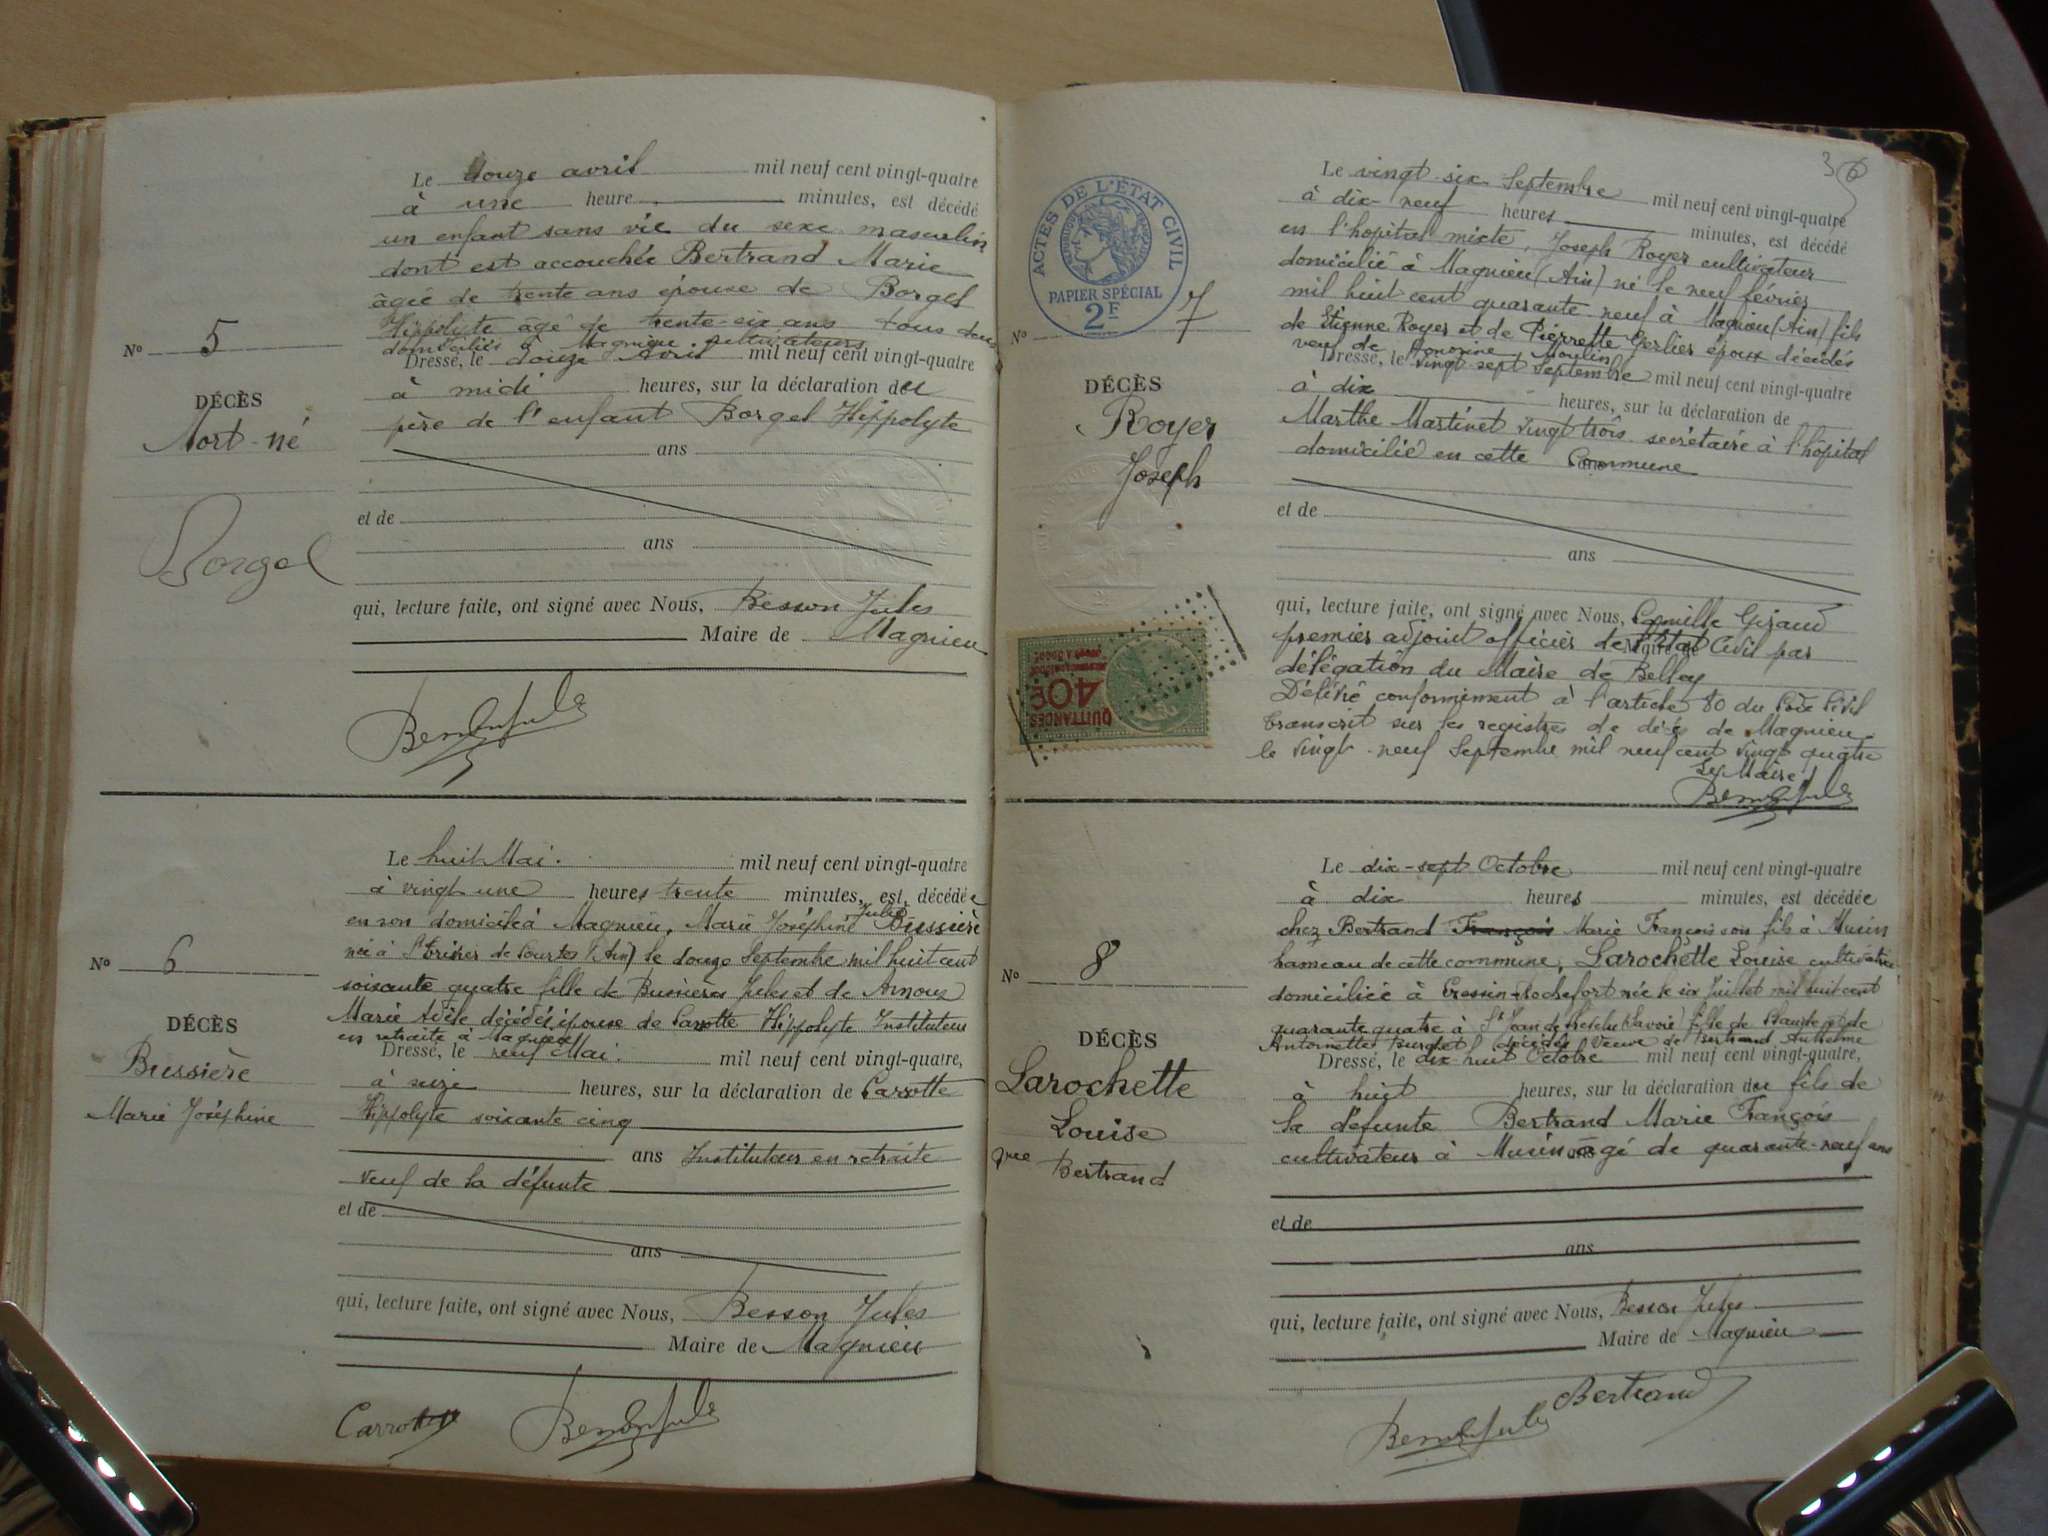 Le douze avril mil neuf cent vingt-quatre
à une heure minutes, est décédé
un enfant sans vie du sexe masculin
dont est accouchée Bertrand Marie
âgée de trente ans épouse de Borgel
Hippolyte âgé de trente-six ans tous deux
domiciliés à Magnieu cultivateurs
Dressé, le douze Avril mil neuf cent vingt-quatre
à midi heures, sur la déclaration du
père de l'enfant Borgel Hippolyte
ans
et de
ans
qui, lecture faite, ont signé avec Nous, Besson Jules
Maire de Magnieu
No 5
DÉCÈS
Mort-né
Borgel
Besson Jules
Le huit Mai. mil neuf cent vingt-quatre
à vingt une heures trente minutes, est décédée
en son domicile à Magnieu, Marie Joséphine Julie Bussière
née à St Trivier de Courtes (Ain) le douze Septembre mil huit cent
soixante quatre fille de Bussières Jules et de Arnoux
Marie Adèle décédés épouse de Carrotte Hippolyte Instituteur
en retraite à Magnieu
Dressé, le neuf Mai. mil neuf cent vingt-quatre,
à seize heures, sur la déclaration de Carrotte
Hippolyte soixante cinq
ans Instituteur en retraite
veuf de la défunte
et de
ans
qui, lecture faite, ont signé avec Nous, Besson Jules
Maire de Magnieu
No 6
DÉCÈS
Bussière
Marie Joséphine
Carrotte Besson Jules
36
ACTES DE L'ÉTAT CIVIL
PAPIER SPÉCIAL
2F
Le vingt six Septembre mil neuf cent vingt-quatre
à dix-neuf heures minutes, est décédé
en l'hopital mixte, Joseph Royer cultivateur
domicilié à Magnieu (Ain) né le neuf février
mil huit cent quarante neuf à Magnieu (Ain) fils
de Etienne Royer et de Pierrette Gerlier époux décédés
veuf de Honorine Moulin
Dressé, le vingt-sept Septembre mil neuf cent vingt-quatre
à dix heures, sur la déclaration de
Marthe Martinet vingt trois secrétaire à l'hôpital
domicilié en cette Commune
et de
ans
qui, lecture faite, ont signé avec Nous, Camille Giraud
premier adjoint officier de l'Etat Civil par
Maire de
délégation du Maire de Belley
Délivré conformément à l'article 80 du Code Civil
transcrit sur les registres de décès de Magnieu
le vingt-neuf Septembre mil neuf cent vingt quatre
Le Maire,
Besson Jules
No 7
DÉCÈS
Royer
Joseph
QUITTANCES
40c
Le dix-sept Octobre mil neuf cent vingt-quatre
à dix heures minutes, est décédée
chez Bertrand François Marie François son fils à Musin
hameau de cette commune, Larochette Louise cultivatrice
domiciliée à Cressin-Rochefort née le six Juillet mil huit cent
quarante quatre à St Jean de (Savoie) fille de Claude et de
Antoinette Burdet décédés Veuve de Bertrand Anthelme
Dressé, le dix-huit Octobre mil neuf cent vingt-quatre,
à huit heures, sur la déclaration du fils de
la défunte Bertrand Marie François
cultivateur à Musin âgé de quarante-neuf ans
et de
ans
qui, lecture faite, ont signé avec Nous, Besson Jules
Maire de Magnieu
No 8
DÉCÈS
Larochette
Louise
Vve Bertrand
Besson Jules Bertrand